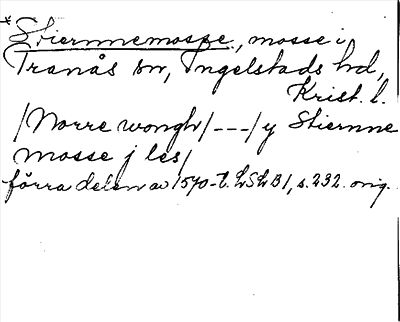 *Stiernnemosse, mosse i
Tranås sn, Ingelstads hd,
Krist. l.
/Norre wongh/---/y Stiernne
mosse j les/
förra delen av 1570-t. LSLB1, s. 232. orig.